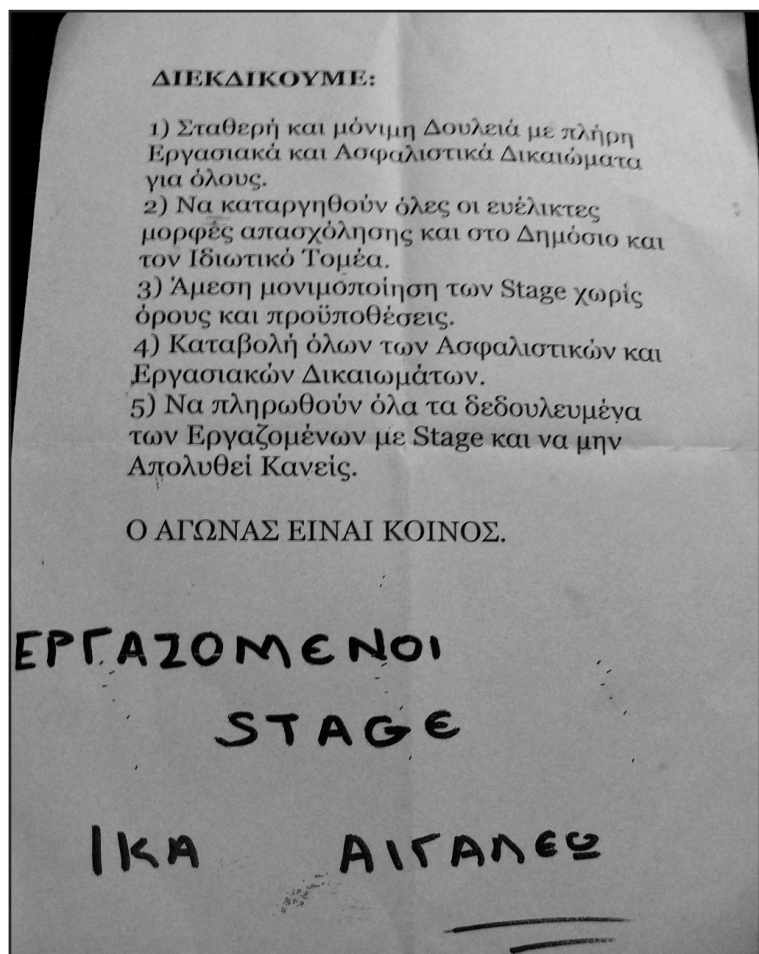 ΔΙΕΚΔΙΚΟΥΜΕ:
1) Σταθερή και μόνιμη Δουλειά με πλήρη
Εργασιακά και Ασφαλιστικά Δικαιώματα
για όλους.
2) Να καταργηθούν όλες οι ευέλικτες
μορφές απασχόλησης και στο Δημόσιο και
τον Ιδιωτικό Τομέα.
3) Άμεση μονιμοποίηση των Stage χωρίς
όρους και προϋποθέσεις.
4) Καταβολή όλων των Ασφαλιστικών και
Εργασιακών Δικαιωμάτων.
5) Να πληρωθούν όλα τα δεδουλευμένα
των Εργαζομένων με Stage και να μην
Απολυθεί Κανείς.
Ο ΑΓΩΝΑΣ ΕΙΝΑΙ ΚΟΙΝΟΣ.
ΕΡΓΑΖΟΜΕΝΟΙ
STAGE
ΙΚΑ ΑΙΓΑΛΕΩ